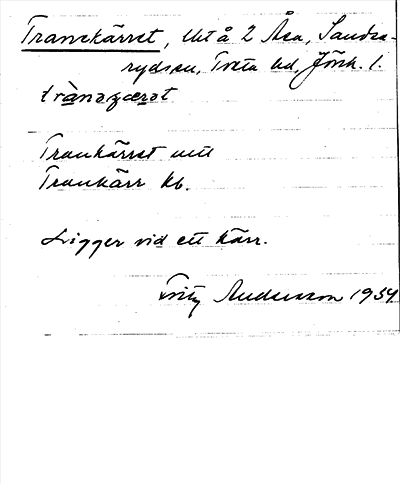 Trankärret, Ut å 2 Åsa, Sands-
rydsen, Tveta hd, Jönk. l.
trànɑçæret
Trankärret mtl
Trankärr kb.
Ligger vid ett kärr.
Fritz Andersson 1934